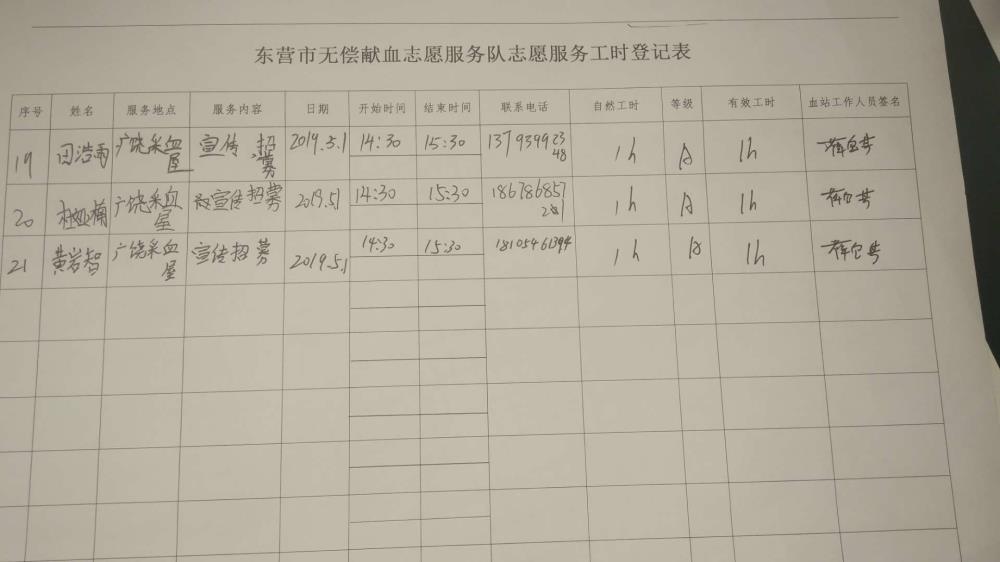 东营市无偿献血志愿服务队志愿服务工时登记表
序号 姓名 服务地点 服务内容 日期 开始时间 结束时间 联系电话 自然工时 等级 有效工时 血站工作人员签名
19 田浩雨 广饶采血屋 宣传招募 2019.5.1 14:30 15:30 13793992348 1h A 1h
20 广饶采血屋 宣传招募 2019.5.1 14:30 15:30 1h A 1h
21 黄岩智 广饶采血屋 宣传招募 2019.5.1 14:30 15:30 18105461394 1h A 1h